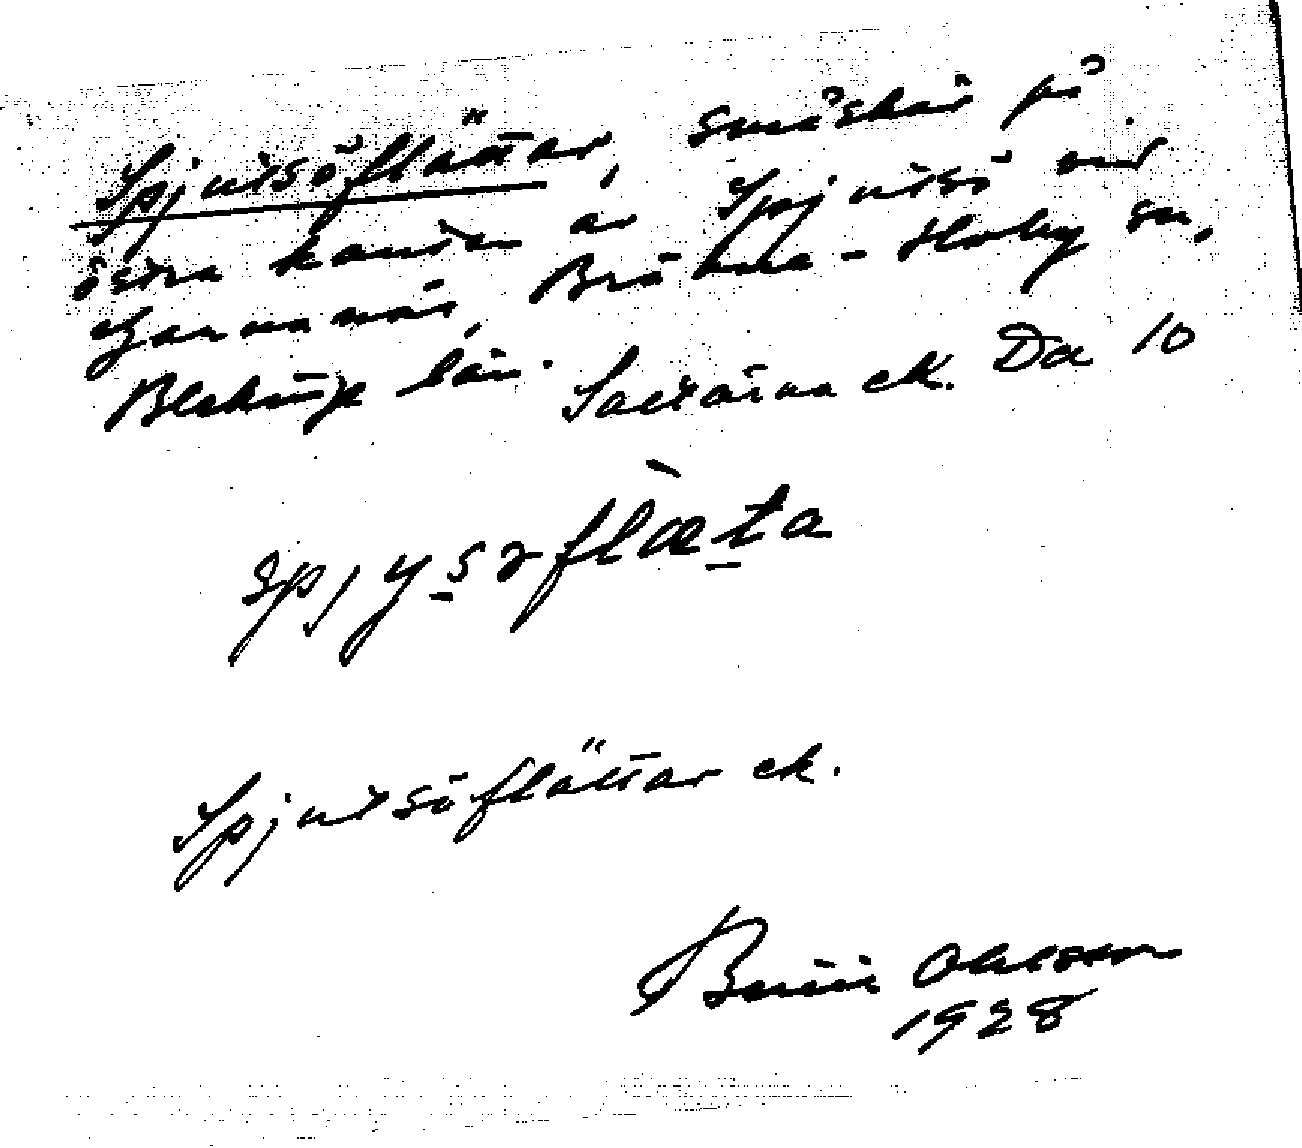 Spjutsöflättar, småskär på
östra kanten av Spjutsö vid
Garnanäs, Bräkne-Hoby sn,
Blekinge län. Saltärna ek. Da 10
spjysəflæta
Spjutsöflättar ek.
Ohlsson
1928